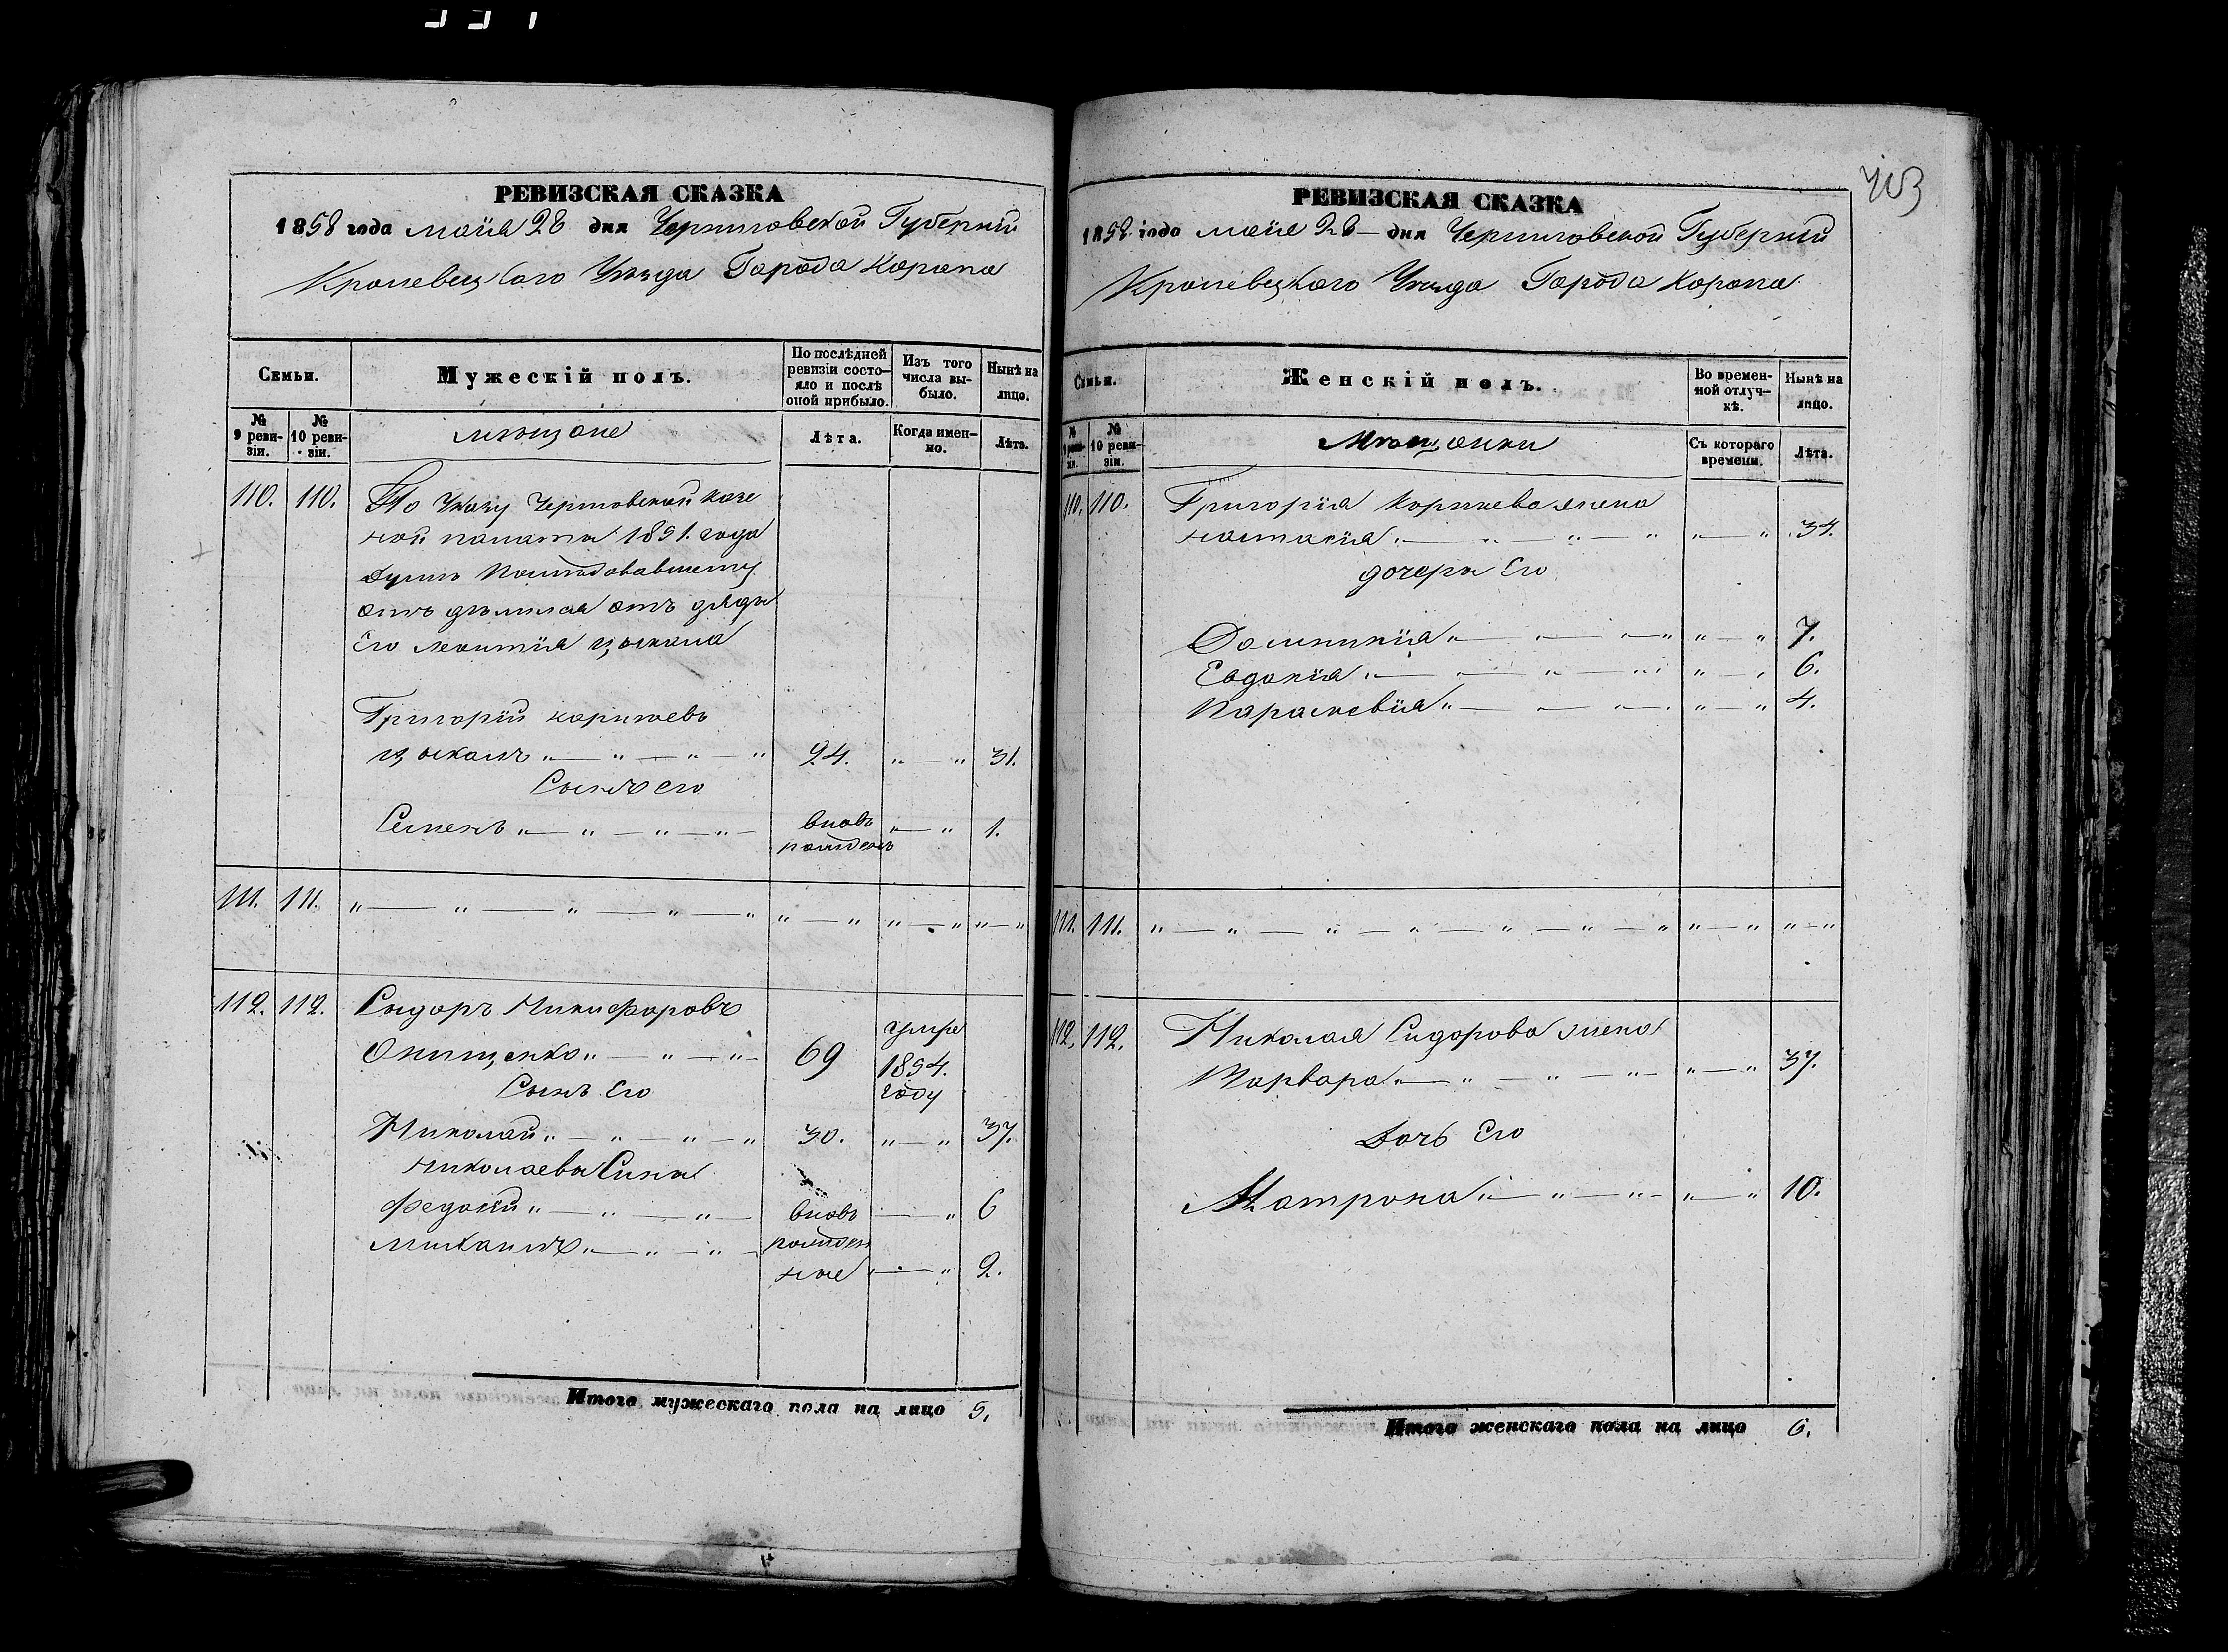 403
РЕВИЗСКАЯ СКАЗКА
1858 года маiя 28 дня Черниговской Губернiи
Кролевецкого Уѣзда Города Коропа
Семьи.
Мужескiй полъ.
По послѣдней ревизiи состояло и послѣ оной прибыло.
Изъ того числа выбыло.
Нынѣ на лицо.
№ 9 ревизiи.
№ 10 ревизiи.
мѣщане
Лѣта.
Когда именно.
Лѣта.
110. 110. По Указу Черниговской казе
ной палаты 1851. года
послѣдовавшему
отъ дѣлился отъ дяди
Его леонтiя цыкала
Григорiй
цыкалъ „ — „ — „ — „ 24. „ — „ 31.
Сынъ его
Семенъ „ — „ — „ — „ — вновь рожденъ „ — „ 1.
111. 111. „ — „ — „ — „ — „ „ — „ „ — „ „ — „
112. 112. Сидоръ Никифоровъ
Онищенко „ — „ — „ — 69 умре 1854. году
Сынъ Его
Николай „ — „ — „ — „ 30. „ — „ 37.
Николаевы Сины
Федосiй „ — „ — „ — вновь — „ 6
Михаилъ „ — „ — „ — рожден
ные „ — „ 2.
Итого мужескаго пола на лицо 5.
РЕВИЗСКАЯ СКАЗКА
1858 года маiя 28 — дня Черниговской Губернiи
Кролевецкого Уѣзда Города Коропа
Семьи.
Женскiй полъ.
Во временной отлучкѣ.
Нынѣ на лицо.
№ 9 ревизiи.
№ 10 ревизiи.
Мѣщанки
Съ котораго времени.
Лѣта.
110. 110. Григорiя жена
настасiя „ — „ — „ — „ „ — „ 34.
дочери Его
Домникiя „ — „ — „ — „ „ — „ 7.
Евдокiя „ — „ — „ — „ „ — „ 6.
Параскевiя „ — „ — „ — „ „ — „ 4.
111. 111. „ — „ — „ — „ — „ — „ — „ „ — „ „ — „
112. 112. Николая Сидорова жена
Варвара „ — „ — „ — „ — „ — „ 37.
Дочь Его
Матрона „ — „ — „ — „ — „ 10.
Итого женскаго пола на лицо 6.